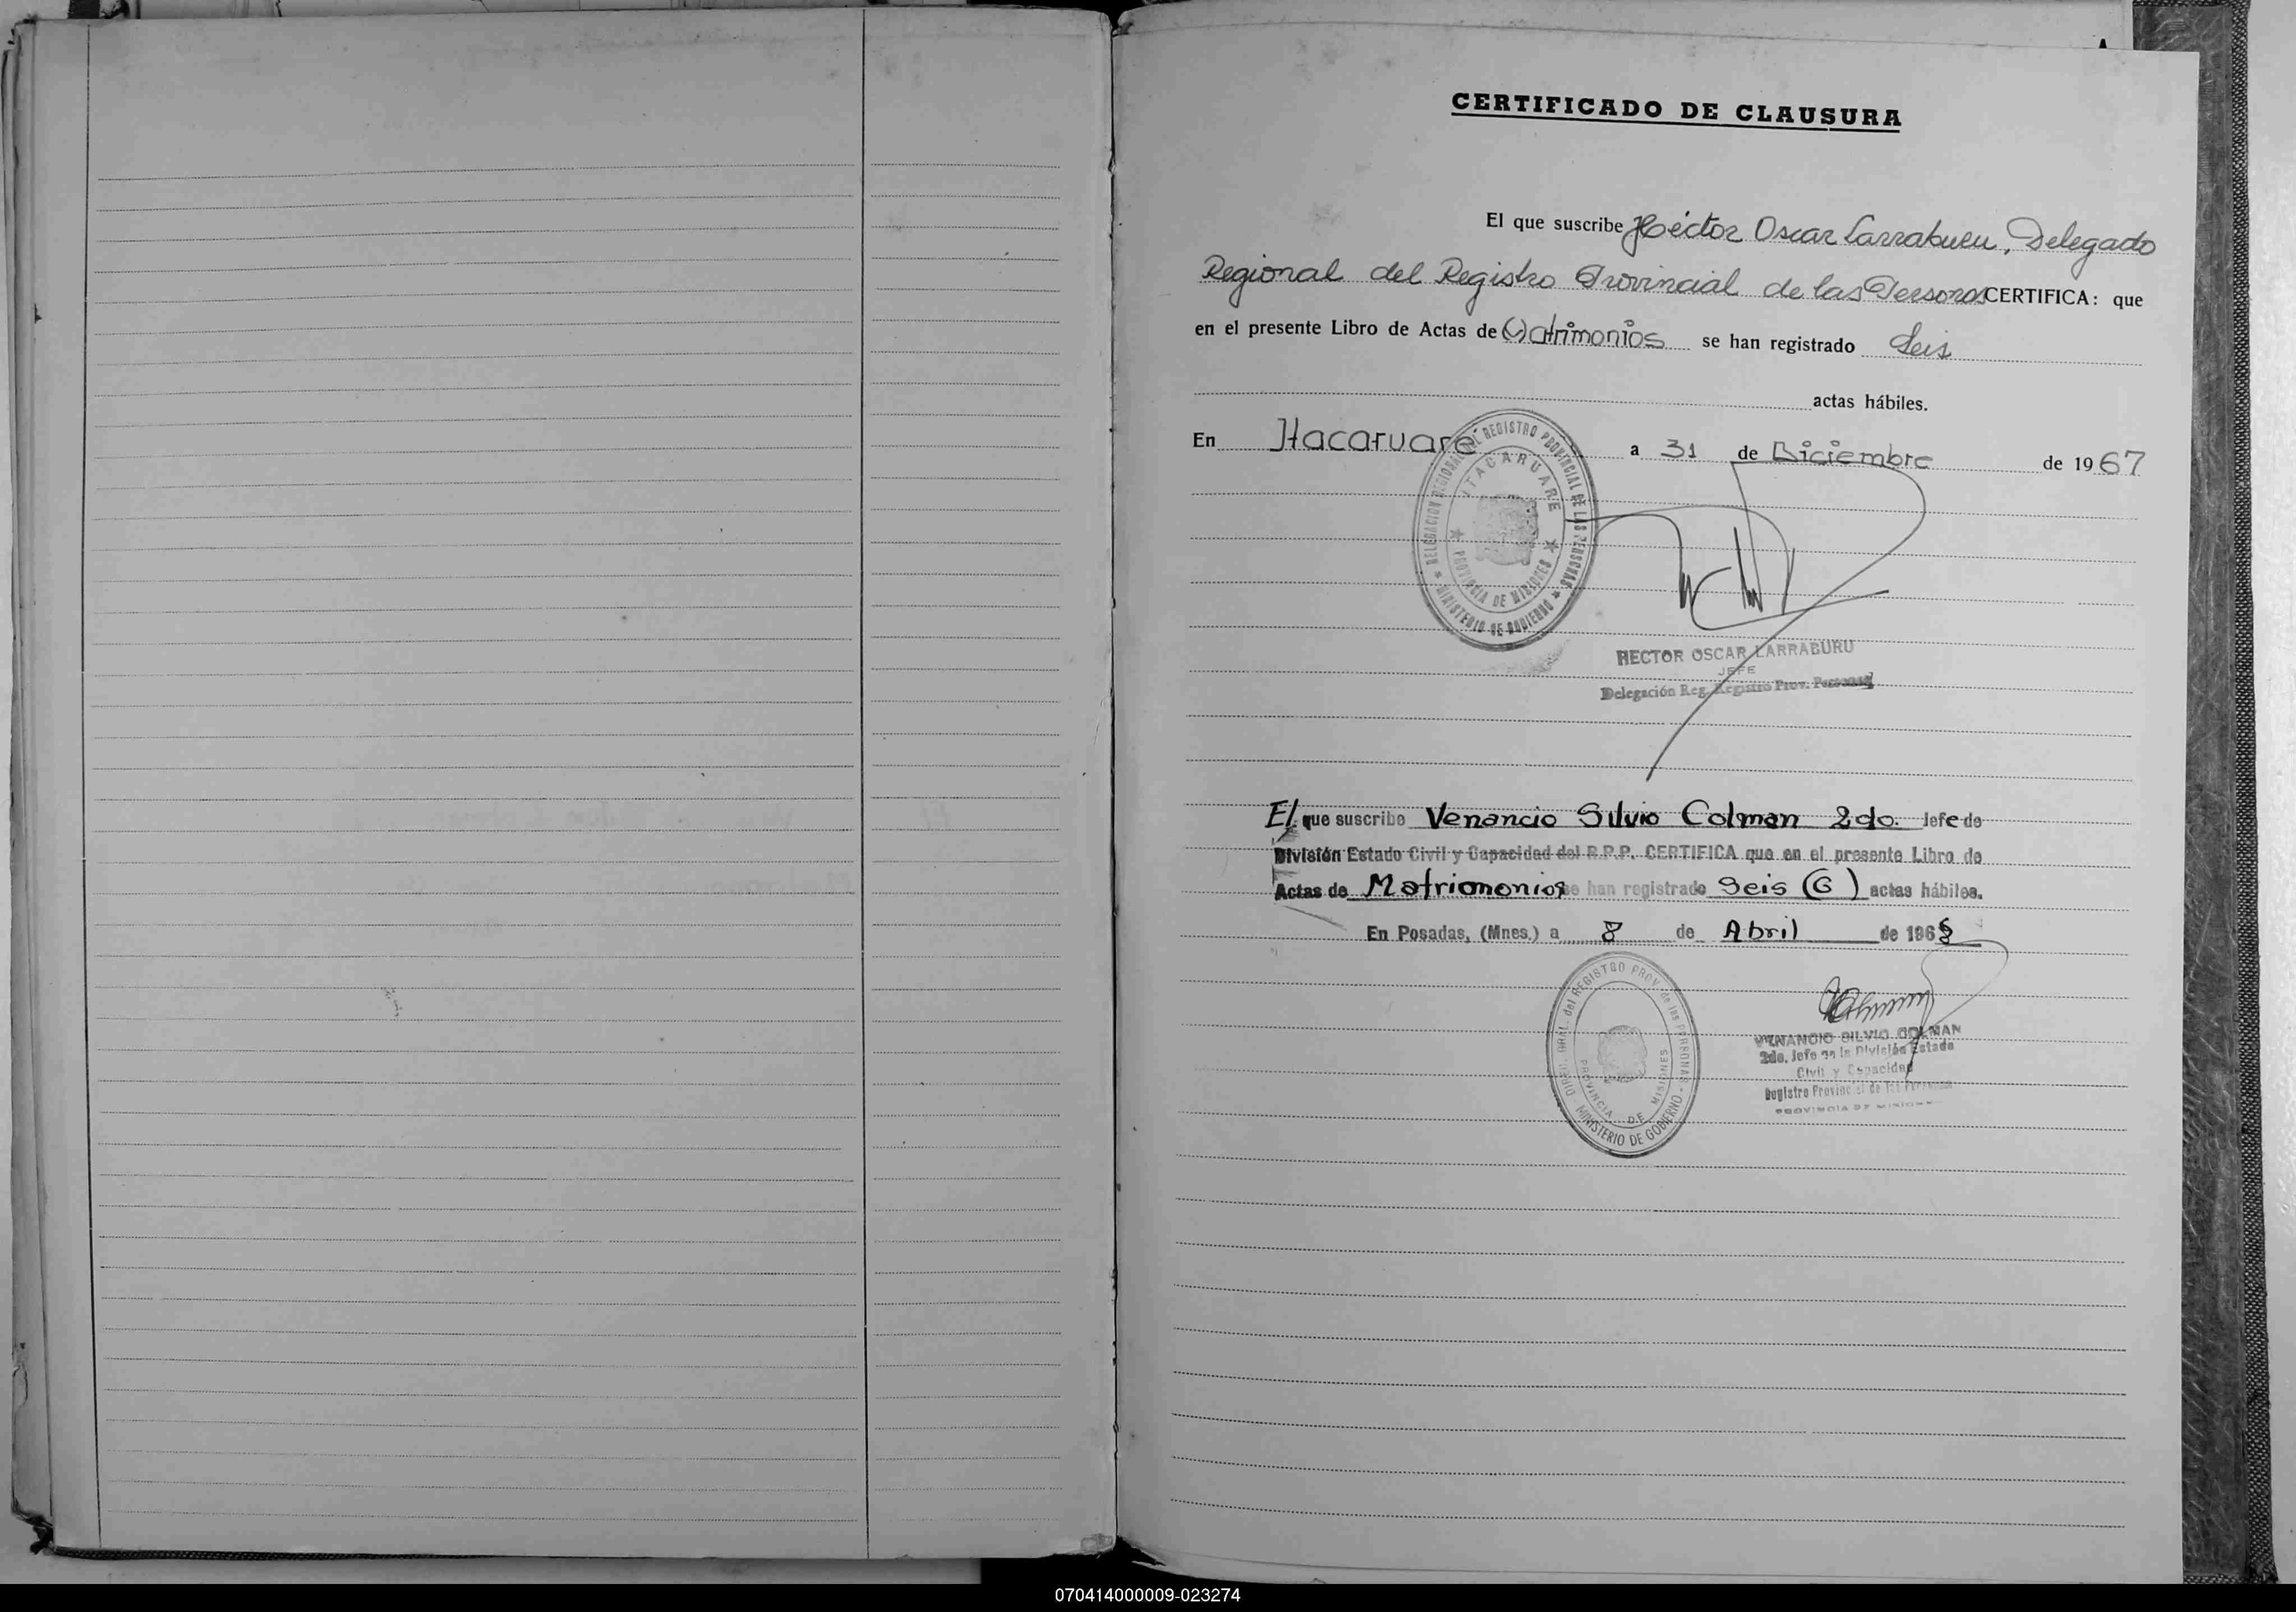 CERTIFICADO DE CLAUSURA
El que suscribe Héctor Oscar Larraburu, Delegado
Regional del Registro Provincial de las Personas CERTIFICA: que
en el presente Libro de Actas de Matrimonios se han registrado Seis
actas hábiles.
En Itacaruaré a 31 de Diciembre de 1967
DELEGACION REGIONAL DEL REGISTRO PROVINCIAL DE LAS PERSONAS
MINISTERIO DE GOBIERNO
ITACARUARE
PROVINCIA DE MISIONES
HECTOR OSCAR LARRABURU
JEFE
Delegación Reg. Registro Prov. Personas
El que suscribe Venancio Silvio Colman 2do. Jefe de
División Estado Civil y Capacidad del R.P.P. CERTIFICA que en el presente Libro de
Actas de Matriomonios se han registrado Seis (6) actas hábiles.
En Posadas, (Mnes.) a 8 de Abril de 1968
DIREC. GRAL. del REGISTRO PROV. de las PERSONAS
MINISTERIO DE GOBIERNO
PROVINCIA DE MISIONES
VENANCIO SILVIO COLMAN
2do. Jefe de la División Estado
Civil y Capacidad
Registro Provincial de las Personas
PROVINCIA DE MISIONES
070414000009-023274